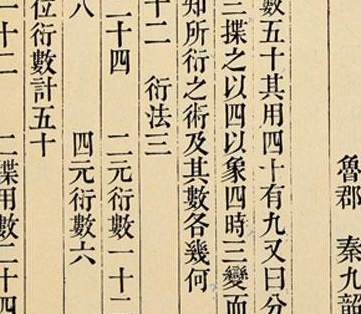 魯郡 秦九韶
數五十其用四十有九又曰分
三揲之以四以象四時三變而
知所衍之術及其數各幾何
十二 衍法三
二十四 二元衍數一十二
八 四元衍數六
位衍數計五十
一十二 二揲用數二十四